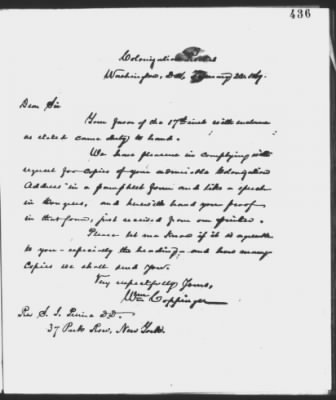 436
Colonization Rooms
Washington, D.C.
Dear Sir
Your favor of the 17th inst with enclosure
as stated came duly to hand.
We have pleasure in complying with
request for copies of your admirable Colonization
Address in a pamphlet form and like a speech
in Congress, and herewith hand you proof
in that form, just received from our printer.
Please let me know if it is agreeable
to you - especially the heading - and how many
Copies we shall send you.
Very respectfully Yours,
Wm Coppinger
Rev S. I. Prime D.D.
37 Park Row, New York.